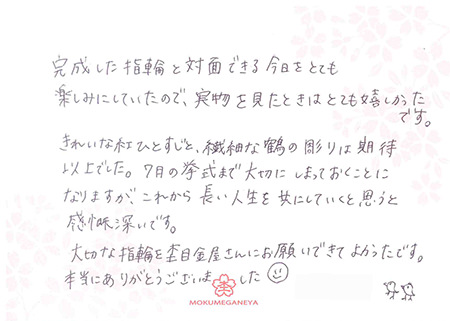 完成した指輪と対面できる今日をとても
楽しみにしていたので、実物を見たときはとても嬉しかった
です。
きれいな紅ひとすじと、繊細な鶴の彫りは期待
以上でした。7月の挙式まで大切にしまっておくことに
なりますが、これから長い人生を共にしていくと思うと
感慨深いです。
大切な指輪を杢目金屋さんにお願いできてよかったです。
本当にありがとうございました
MOKUMEGANEYA